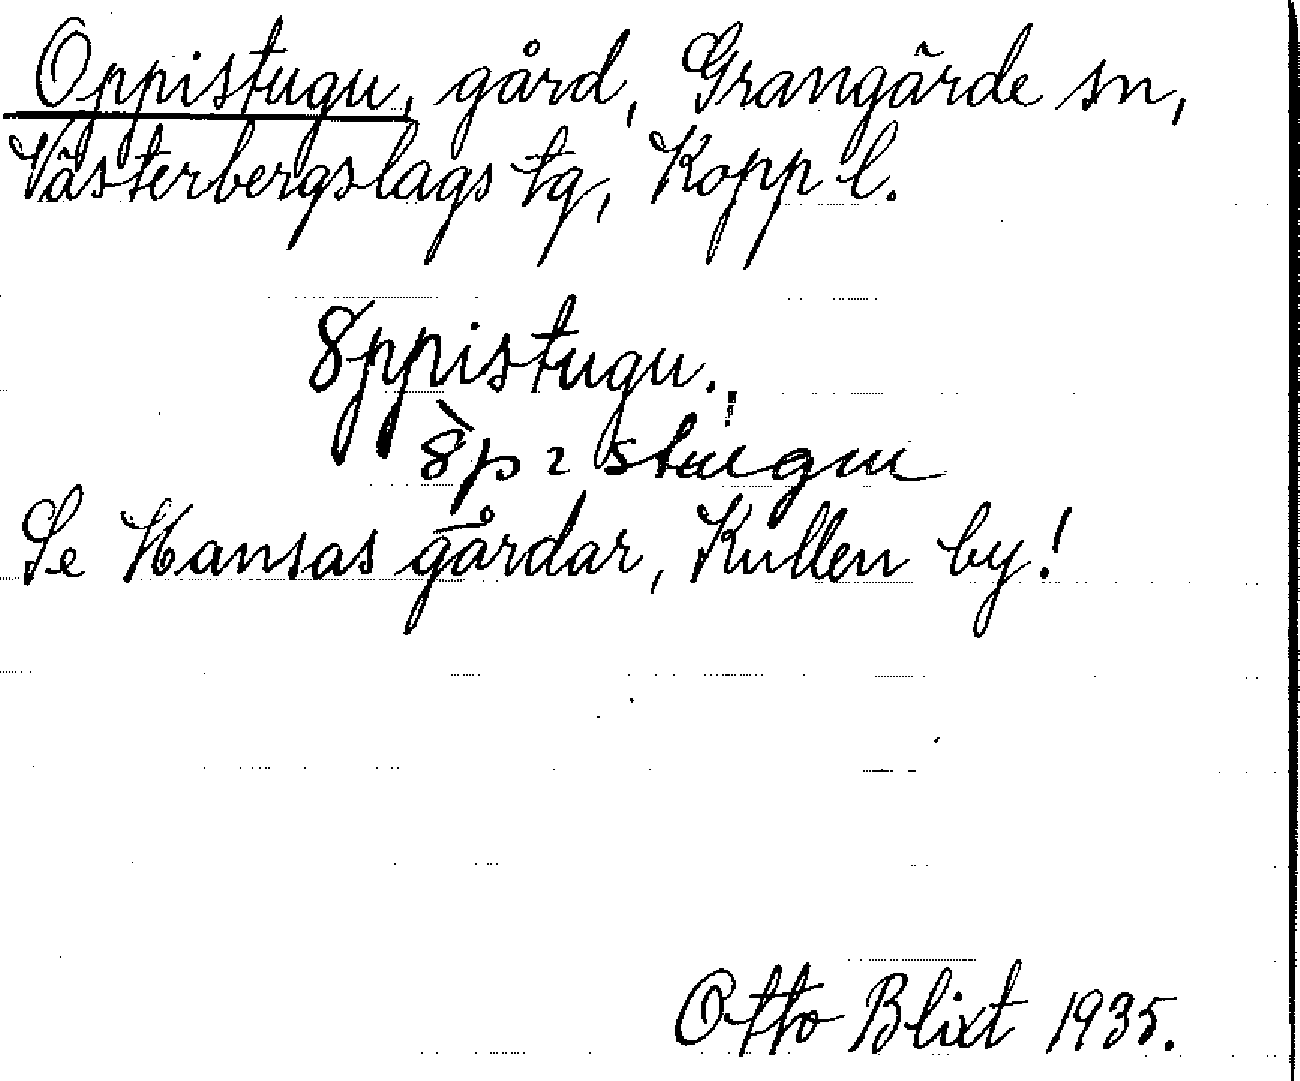 Oppistugu, gård, Grangärde sn,
Västerbergslags tg, Kopp l.
8ppistugu.
Se Hansas gårdar, Kullen by!
Otto Blixt 1935.